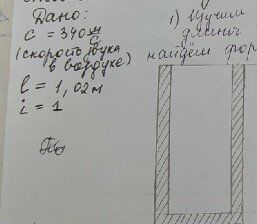 Дано:
c = 340 м/с
(скорость звука
в воздухе)
l = 1,02 м
i = 1
1) Изучим
длины
найдём фор